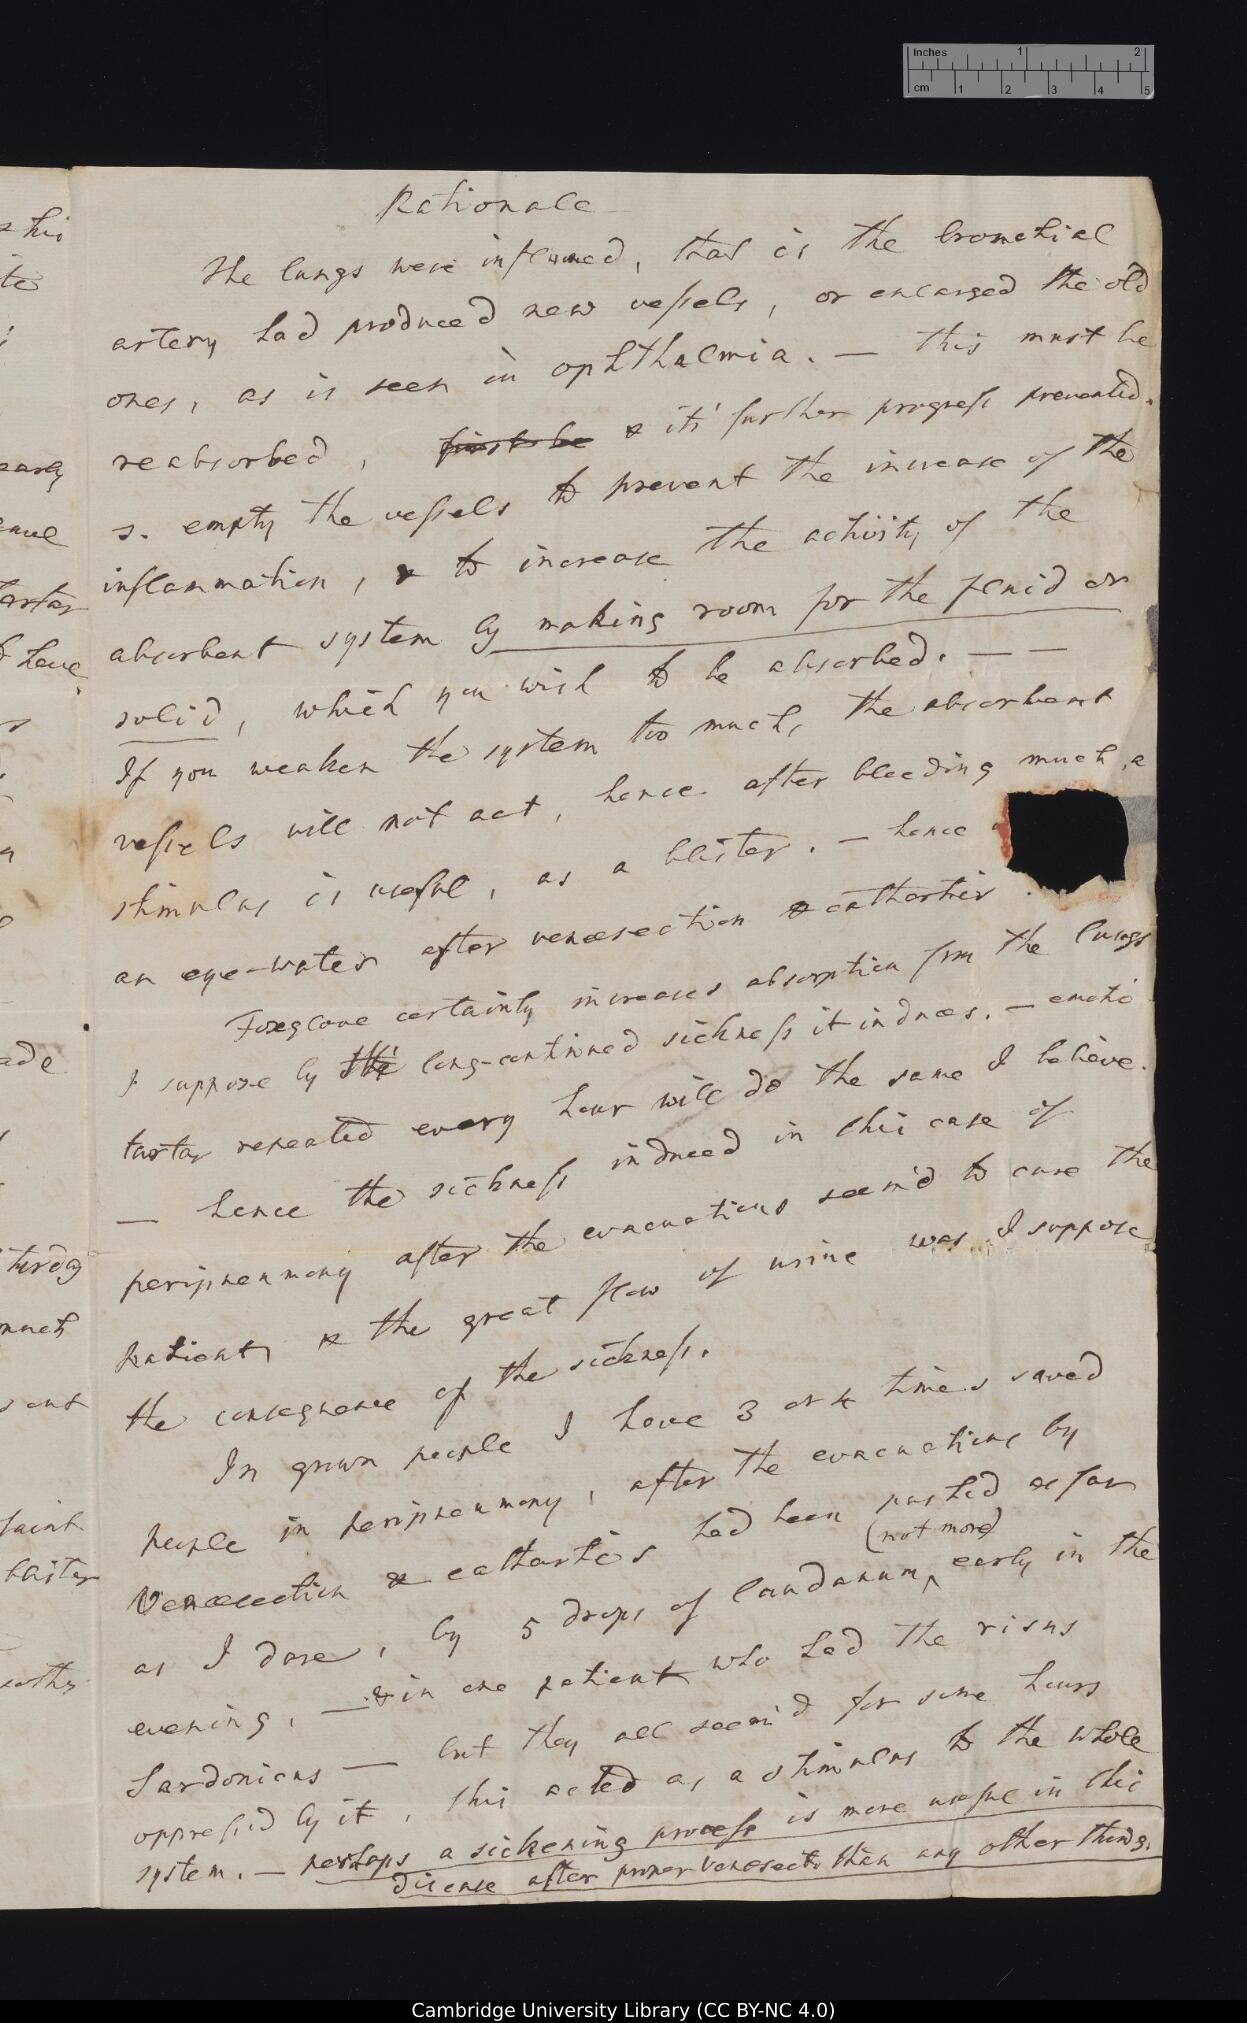 Rationale
The lungs were inflamed, that is the bronchial
artery had produced new vessels, or enlarged the old
ones, as is seen in ophthalmia. — this must be
reabsorbed, first be & its' further progress prevented.
s. empty the vessels to prevent the increase of the
inflammation, & to increase the activity of the
absorbent system by making room for the fluid or
solid, which you wish to be absorbed. — —
If you weaken the system too much, the absorbent
vessels will not act, hence after bleeding much, a
stimulus is useful, as a blister. — hence
an eye-water after venæsection & cathartics.
Foxglove certainly increases absorption from the lungs
I suppose by the long-continued sickness it induces. — emetic
tartar repeated every hour will do the same I believe.
— hence the sickness induced in this case of
peripneumony after the evacuations seem'd to cure the
patient, & the great flow of urine was I suppose
the consequence of the sickness.
In grown people I have 3 or 4 times saved
people in peripneumony, after the evacuations by
Venæsection & cathartics had been pushed as far
(not more)
as I dare, by 5 drops of laudanum, early in the
evening, — & in one patient who had the risus
Sardonicus — but they all seem'd for some hours
oppressed by it, this acted as a stimulus to the whole
system. — perhaps a sickening process is more useful in this
disease after proper venesect. than any other thing.
his
early
have
ade
much
faint
blister
Inches 1 2
cm 1 2 3 4 5
Cambridge University Library (CC BY-NC 4.0)